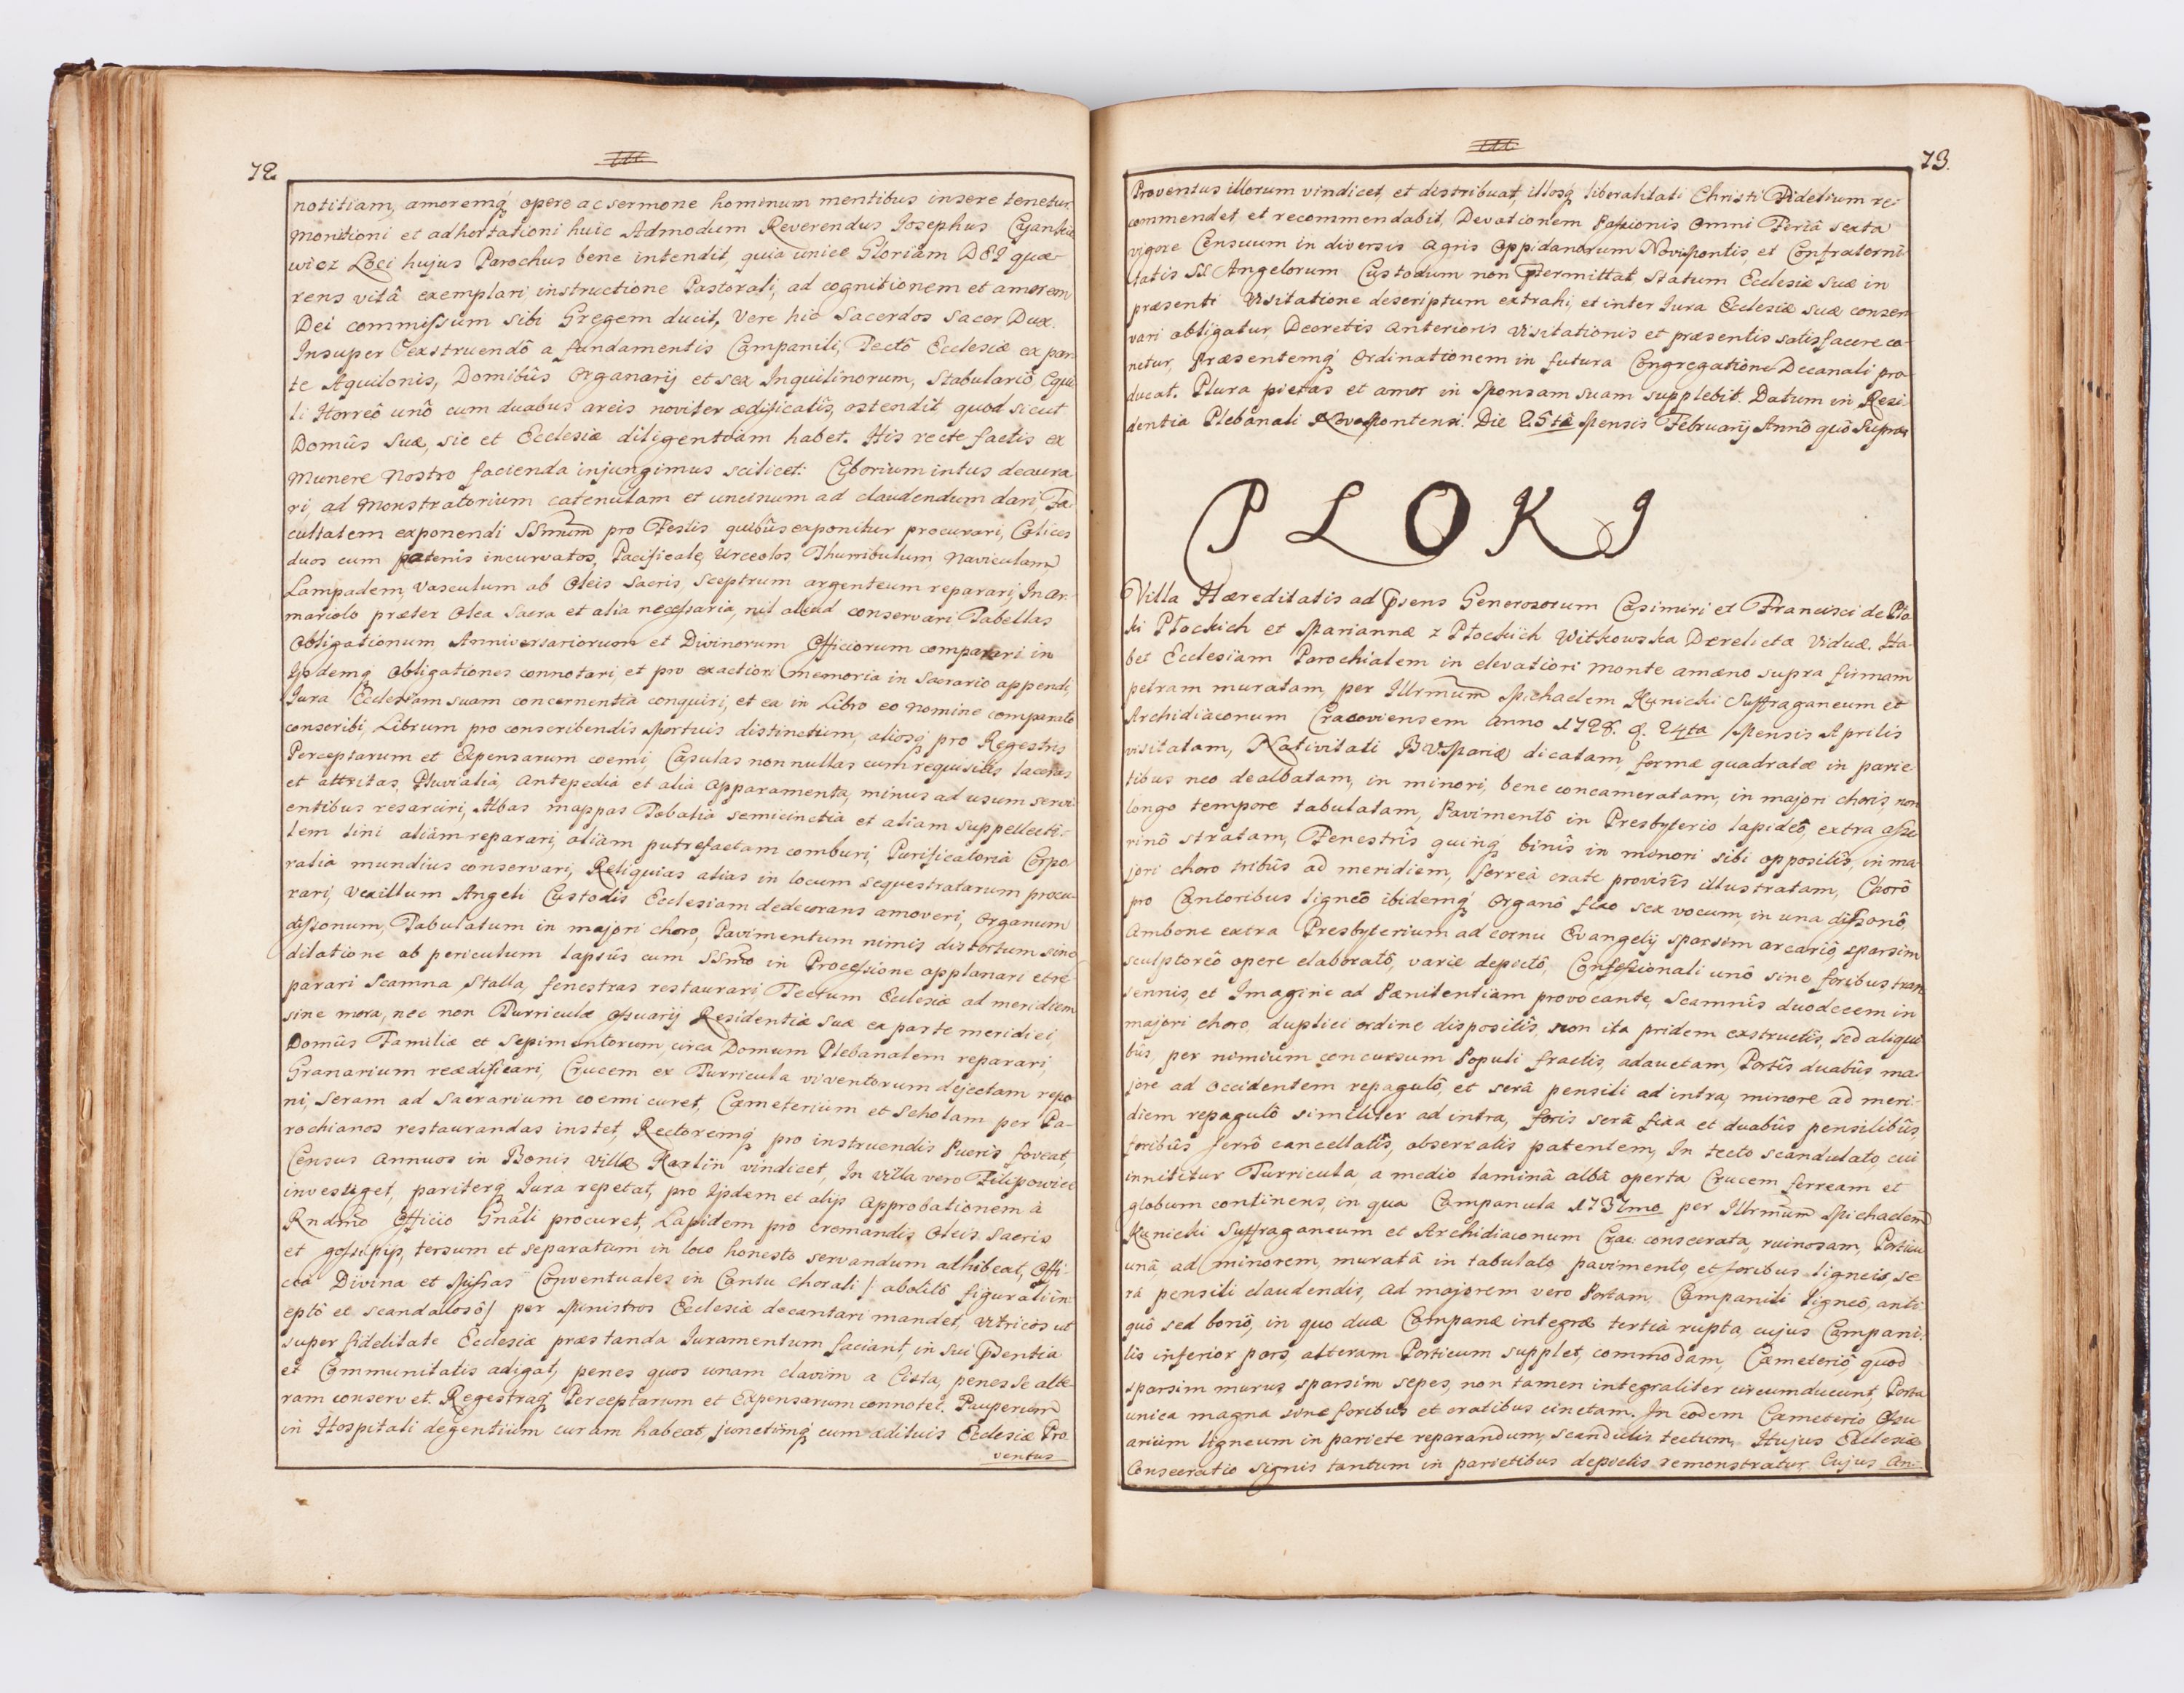 72.
notitiam, amoremq́ opere ac sermone hominum mentibus insere tenetur.
Monitioni et adhortationi huic Admodum Reverendus Josephus Cyankie
wicz Loci hujus Parochus bene intendit, quia unice Gloriam DEI quæ-
rens vitâ exemplari, instructione Pastorali, ad cognitionem et amorem
Dei commissum sibi Gregem ducit, Vere hic Sacerdos Sacer Dux.
Insuper exstruendô a fundamentis Campanili, Tectô Ecclesiæ ex par-
te Aquilonis, Domibûs Organarij et sex Inquilinorum, Stabulariô, Equi
li Horreô unô cum duabus areis noviter ædificatîs, ostendit quod sicut
Domûs Suæ, sic et Ecclesiæ diligentiam habet. His recte factis ex
Munere Nostro facienda injungimus scilicet: Ciborium intus deaura
ri, ad Monstratorium catenulam et uncinum ad claudendum dari, Fa-
cultatem exponendi SSmum pro Festis quibûs exponitur procurari, Calices
duos cum patenis incurvatos, Pacificale, Urceolos, Thurribulum Naviculam,
Lampadem, Vasculum ab Oleis Sacris, Sceptrum argenteum reparari, In ar-
mariolo præter Olea Sacra et alia necessaria, nil aliud conservari Tabellas
Obligationum Anniversariorum et Divinorum Officiorum comparari in
Ijsdemq́ Obligationes connotari, et pro exactiori memoria in Sacrario appendi,
Jura Ecclesiam suam concernentia conquiri, et ea in Libro eo nomine comparato
conscribi, Librum pro conscribendis Mortuis distinctum, aliosq́ pro Regestris
Perceptarum et Expensarum coemi, Casulas nonnullas cum requisitis laceras
et attritas, Pluvialia, Antepedia et alia Apparamenta, minus ad usum servi
entibus resarciri, Albas mappas Tobalia semicinctia et aliam suppellecti-
lem lini aliàm reparari, aliàm putrefactam comburi, Purificatoria Corpo
ralia mundius conservari, Reliquias alias in locum sequestratarum procu-
rari, Vexillum Angeli Custodis Ecclesiam dedecorans amoveri, Organum
dissonum, Tabulatum in majori choro, Pavimentum nimis distortum sine
dilatione ob periculum lapsûs cum SSmo in Processione applanari et re-
parari Scamna, Stalla, fenestras restaurari, Tectum Ecclesiæ ad meridiem
sine mora, nec non Turriculæ Ossuarij Residentiæ Suæ ex parte meridiei,
Domûs Familiæ et Sepimentorum, circa Domum Plebanalem reparari,
Granarium reædificari, Crucem ex Turricula viventorum dejectam repo
ni, Seram ad Sacrarium coemi curet, Cæmeterium et Scholam per Pa-
rochianos restaurandas instet, Rectoremq́ pro instruendis Pueris foveat,
Census Annuos in Bonis Villæ Karlin vindicet, In Villa vero Filipowice
investiget, pariterq́ Jura repetat, pro Ijsdem et alijs Approbationem à
Rndmo Officio Gnali procuret, Lapidem pro cremandis Oleis Sacris
et gossipijs, tersum et separatum in loco honesto servandum adhibeat, Offi-
cia Divina et Missas Conventuales in Cantu chorali /: abolitô figurali in-
eptô et scandalosô / per Ministros Ecclesiæ decantari mandet, Vitricos ut
super fidelitate Ecclesiæ præstanda Juramentum faciant, in sui p̄sentia
et Communitatis adigat, penes quos unam clavim a Cista, penes se alte-
ram conservet. Regestraq́ Perceptarum et Expensarum connotet. Pauperum
in Hospitali degentium curam habeat, junctimq́ cum ædituis Ecclesiæ Pro
ventus
73.
Proventus illorum vindicet, et distribuat, illosq́ liberalitati Christi Fidelium re-
commendet, et recommendabit, Devotionem Passionis Omni Feriâ sexta
vigore Censuum in diversis Agris Oppidanorum Novimontis, et Confraterni-
tatis SS Angelorum Custodum non p̄termittat, Statum Ecclesiæ suæ in
præsenti Visitatione descriptum extrahi, et inter Jura Ecclesiæ suæ conser-
vari obligatur, Decretis Anterioris Visitationis et præsentis satisfacere co-
netur, Præsentemq́ Ordinationem in futura Congregatione Decanali pro-
ducat. Plura pietas et amor in Sponsam suam supplebit. Datum in Resi-
dentia Plebanali Novomontensi. Die 25ta Mensis Februarij Annô quô Supra.
PLOKI
Villa Hæreditatis ad p̄sens Generosorum Casimiri et Francisci de Plo-
ki Płockich et Mariannæ z Płockich Witkowska Derelicta Viduæ. Ha-
bet Ecclesiam Parochialem in elevatiori monte amæno supra firmam
petram muratam, per Illrmum Michaelem Kunicki Suffraganeum et
Archidiaconum Cracoviensem Anno 1728. d. 24ta Mensis Aprilis
visitatam, Nativitati B V Mariæ dicatam, formæ quadratæ in parie-
tibus neo dealbatam, in minori, bene concameratam, in majori choris, non
longo tempore tabulatam, Pavimentô in Presbyterio lapideô, extra asse
rinô stratam, Fenestrîs quinq́ binîs in minori sibi oppositîs, in ma-
jori choro tribûs ad meridiem, ferreà crate provisîs illustratam, Chorô
pro Cantoribus ligneô ibidemq́ Organô fixo sex vocum, in una dissonô,
Ambone extra Presbyterium ad cornu Evangelij sparsim arcariô, sparsim
sculptoreô opere elaboratô, varie depictô, Confessionali unô sine foribus, tran
sennis, et Imagine ad Pænitentiam provocante, Scamnîs duodecem in
majori choro, duplici ordine dispositîs, non ita pridem exstructîs, sed aliqui-
bûs, per nimium concursum Populi fractis, adauctam, Portîs duabûs, ma-
jore ad Occidentem repagulô, et serâ pensili ad intra, minore ad meri-
diem repagulô similiter ad intra, foris serâ fixa et duabûs pensilibûs,
foribûs ferrô cancellatîs, obseratis patentem, In tecto scandulato, cui
innititur Turricula, a medio laminâ albâ operta Crucem ferream et
globum continens, in qua Campanula 1737mo per Illrmum Michaelem
Kunicki Suffraganeum et Archidiaconum Crac: consecrata, ruinosam, Porticu
unâ, ad minorem, muratâ in tabulato pavimento, et foribus ligneis, se-
rà pensili claudendis, ad majorem vero Portam, Campanili ligneô, anti
quô sed bonô, in quo duæ Campanæ integræ tertia rupta, cujus Campani-
lis inferior pars, alteram Porticum supplet, commodam, Cæmeteriô, quod
sparsim murus, sparsim sepes, non tamen integraliter circumducunt, Porta
unica magna sine foribus et cratibus cinctam. In eodem Cæmeterio, Ossu
arium ligneum in pariete reparandum, scandulis tectum, Hujus Ecclesiæ
Consecratio signis tantum in parietibus depictis remonstratur. Cujus An-